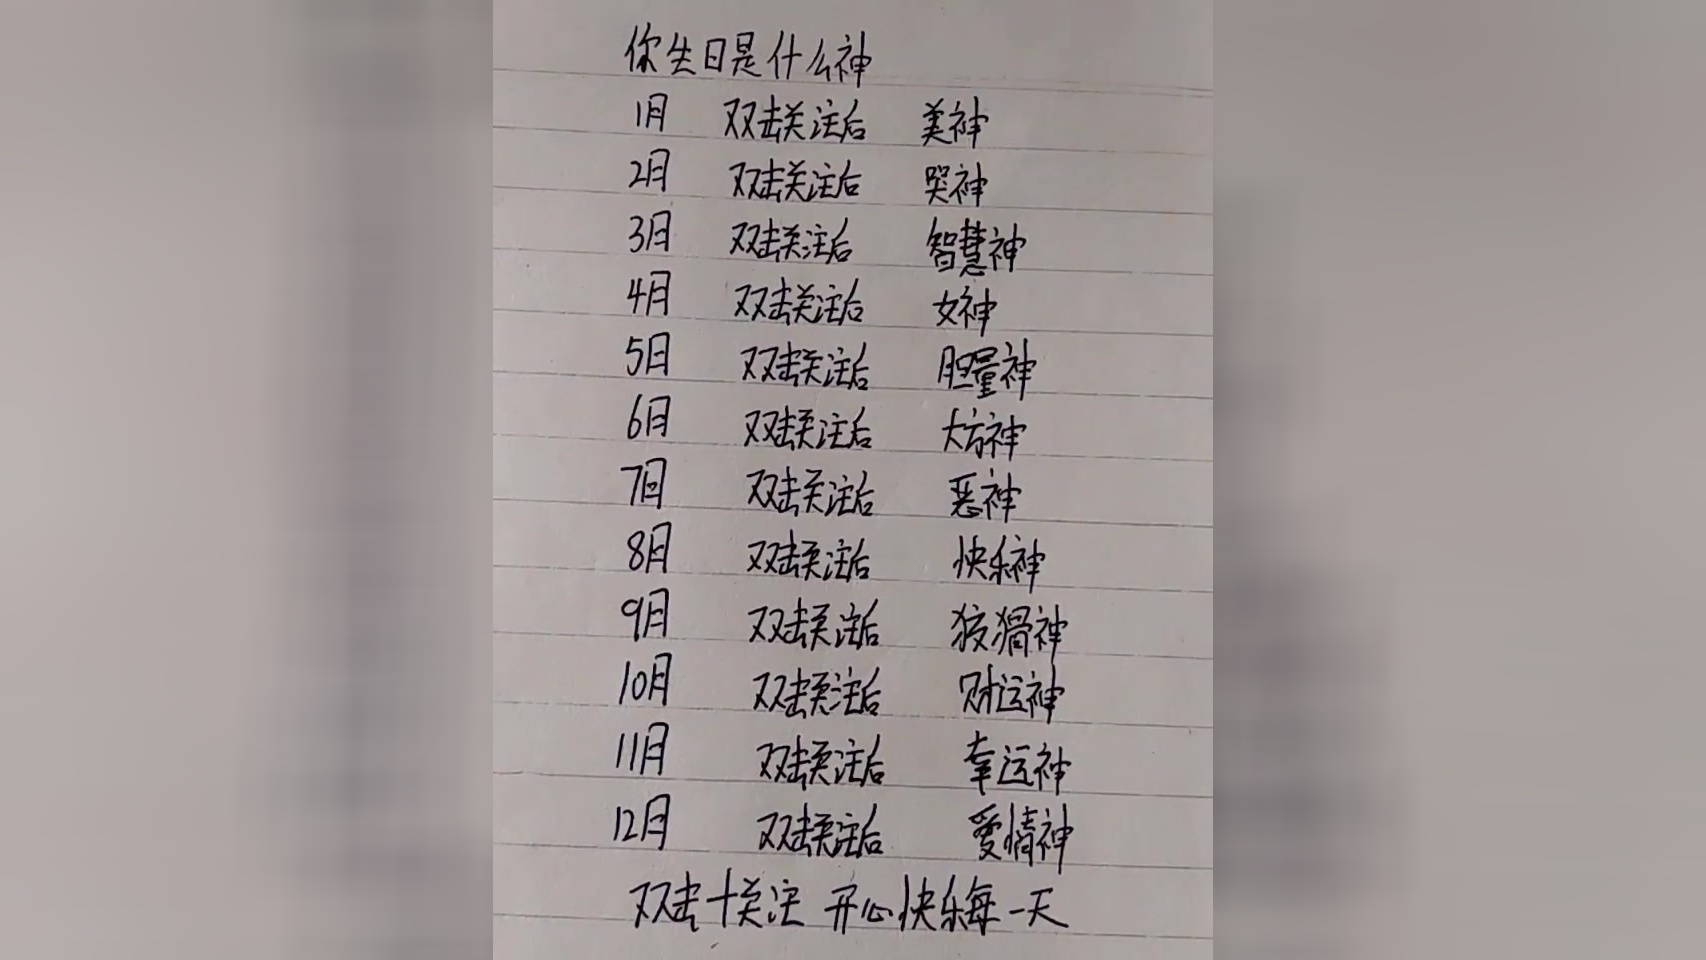 你生日是什么神
1月 双击关注后 美神
2月 双击关注后 哭神
3月 双击关注后 智慧神
4月 双击关注后 女神
5月 双击关注后 胆量神
6月 双击关注后 大方神
7月 双击关注后 恶神
8月 双击关注后 快乐神
9月 双击关注后 狡猾神
10月 双击关注后 财运神
11月 双击关注后 幸运神
12月 双击关注后 爱情神
双击+关注 开心快乐每一天